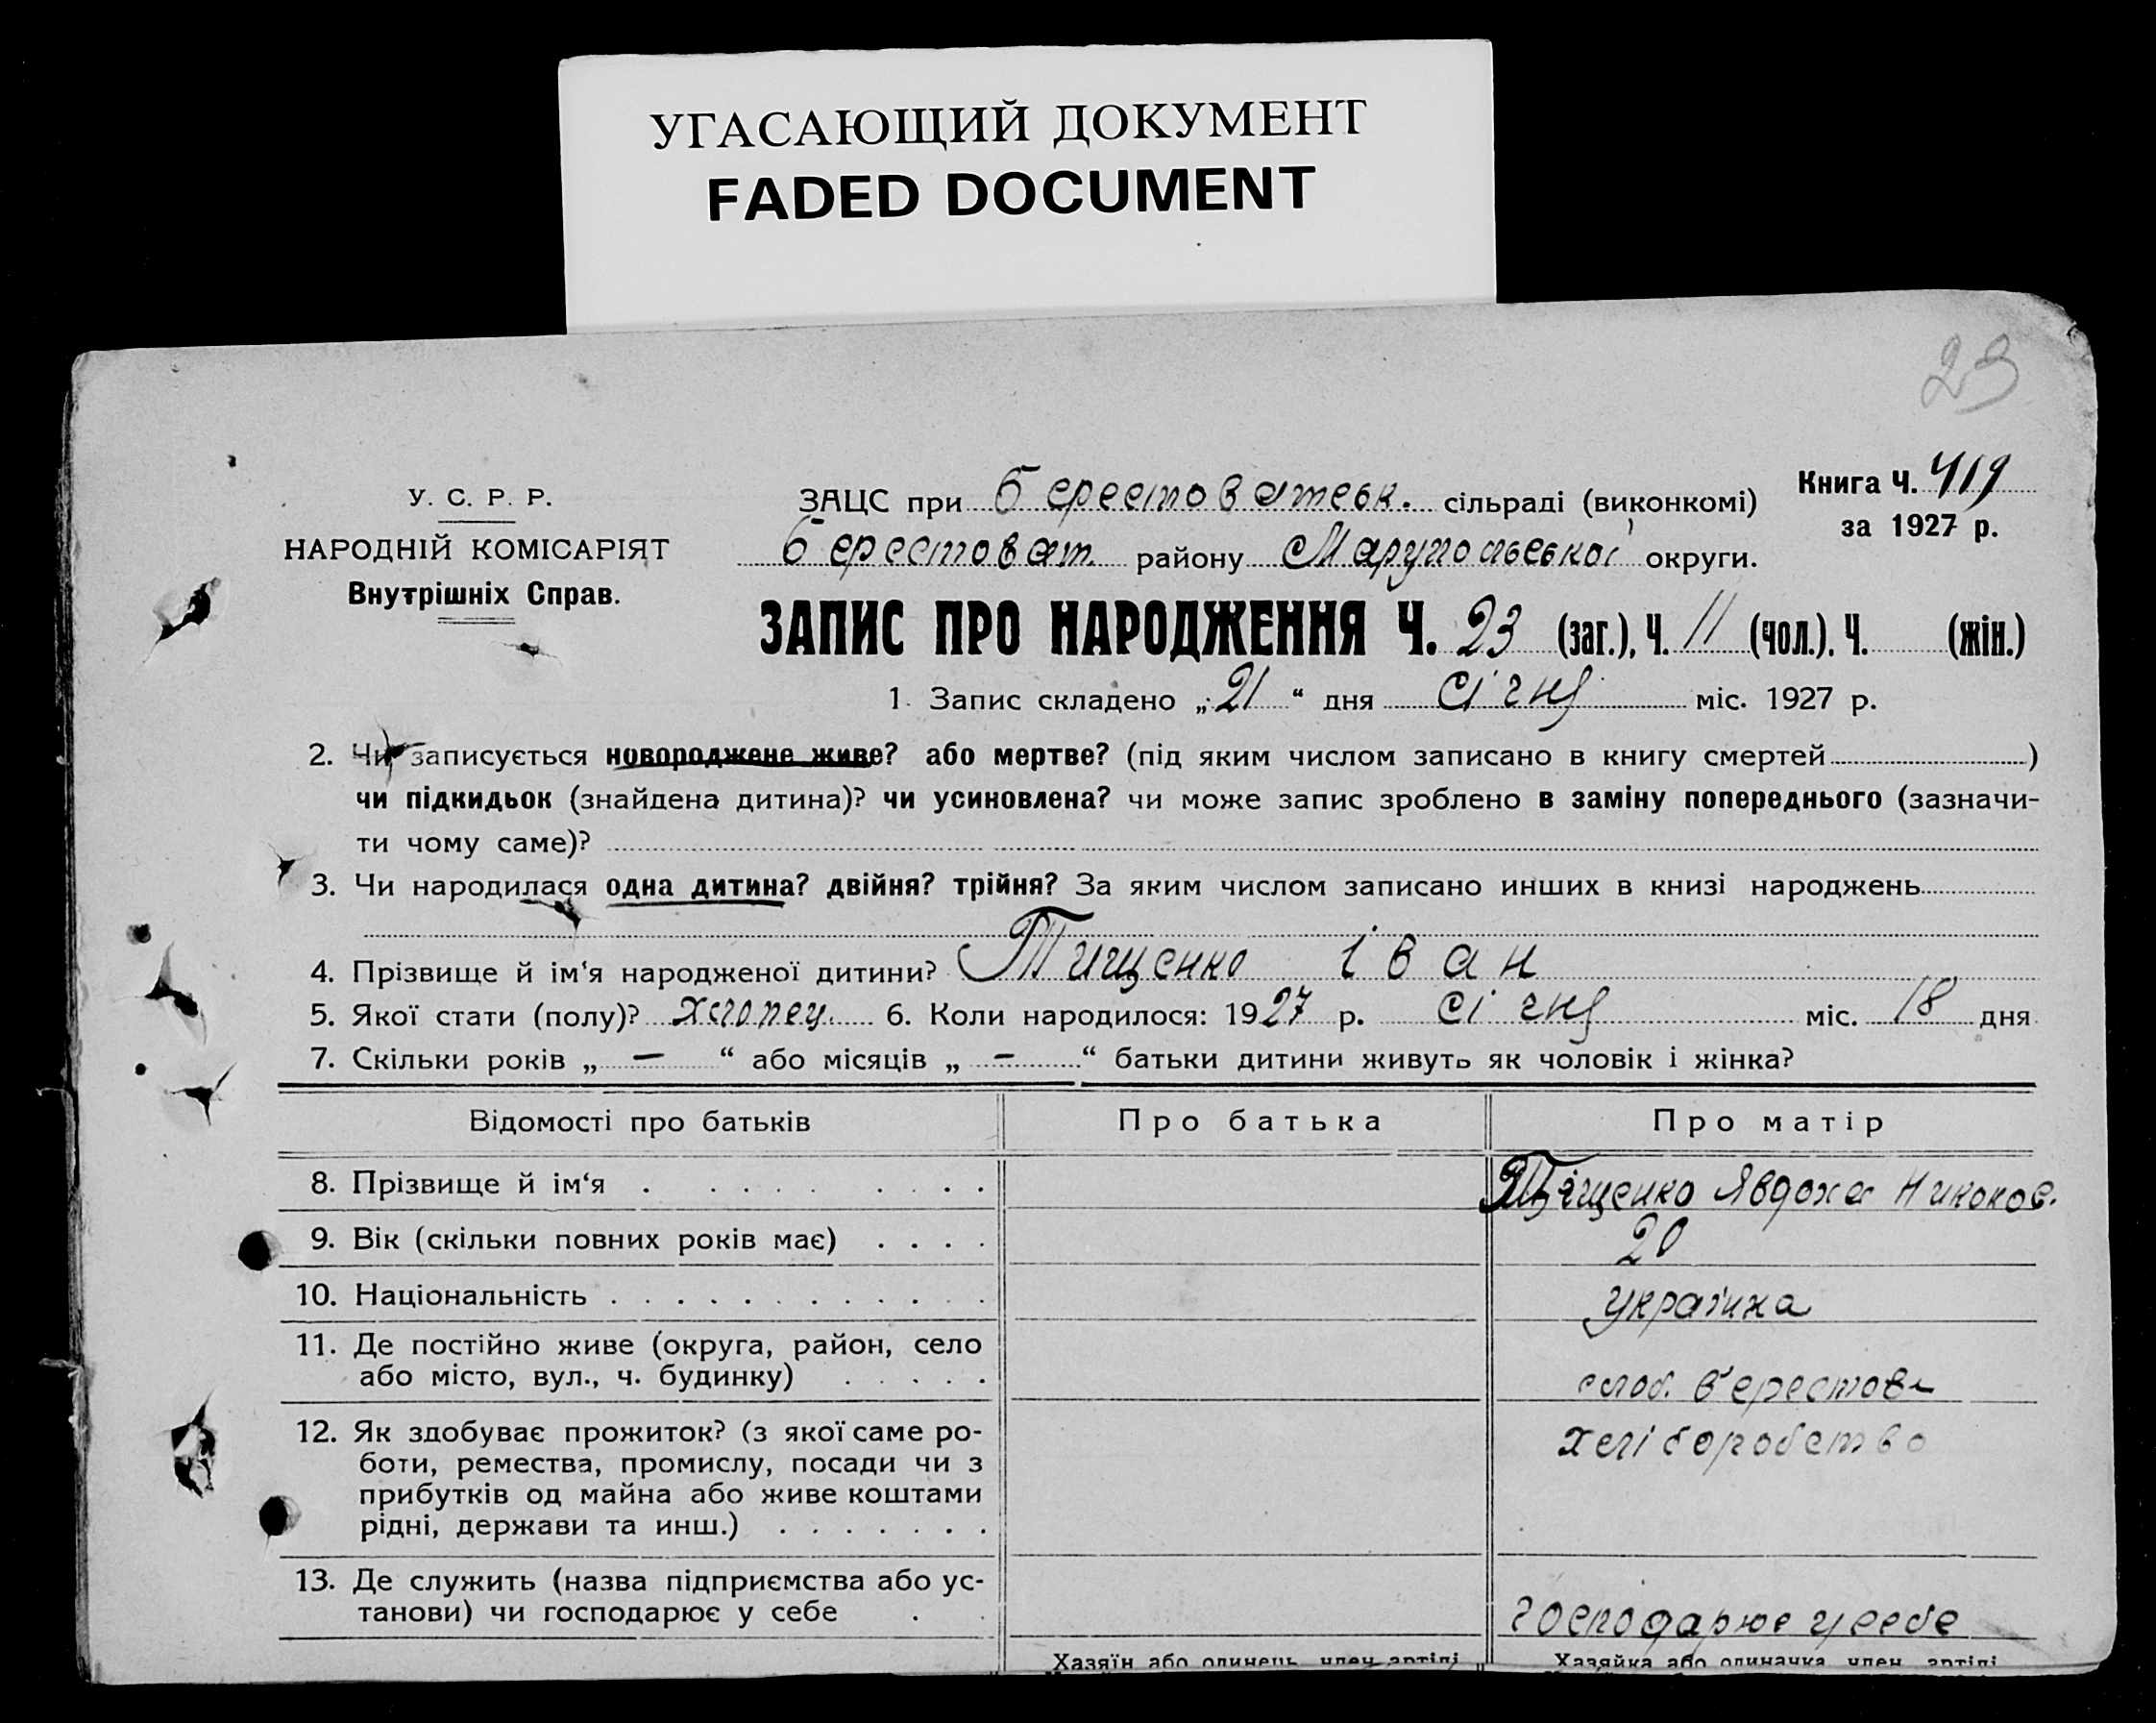 УГАСАЮЩИЙ ДОКУМЕНТ
FADED DOCUMENT
23
У. С. Р. Р.
НАРОДНІЙ КОМІСАРІЯТ
Внутрішніх Справ.
ЗАЦС при Берестоватськ. сільраді (виконкомі)
Берестоват. району Марупольської округи.
Книга Ч. 419
за 1927 р.
ЗАПИС ПРО НАРОДЖЕННЯ Ч. 23 (заг.), Ч. 11 (чол.), Ч. (жін.)
1. Запис складено „21“ дня січня міс. 1927 р.
2. Чи записується новороджене живе? або мертве? (під яким числом записано в книгу смертей )
чи підкидьок (знайдена дитина)? чи усиновлена? чи може запис зроблено в заміну попереднього (зазначи-
ти чому саме)?
3. Чи народилася одна дитина? двійня? трійня? За яким числом записано инших в книзі народжень
4. Прізвище й ім‘я народженої дитини? Тищенко Іван
5. Якої стати (полу)? хлопец. 6. Коли народилося: 1927 р. січня міс. 18 дня
7. Скільки років „ — “ або місяців „ — “ батьки дитини живуть як чоловік і жінка?
Відомості про батьків Про батька Про матір
8. Прізвище й ім‘я . . . . . . . . . Тіщенко Явдоха
9. Вік (скільки повних років має) . . . . 20
10. Національність . . . . . . . . . . . . українка
11. Де постійно живе (округа, район, село
або місто, вул., ч. будинку) . . . . . слоб. Берестов
12. Як здобуває прожиток? (з якої саме ро- хліборобство
боти, ремества, промислу, посади чи з
прибутків од майна або живе коштами
рідні, держави та инш.) . . . . . . .
13. Де служить (назва підприємства або ус-
танови) чи господарює у себе . . господарює у себе
Хазяїн або одинець, член артілі Хазяйка або одиначка, член артілі